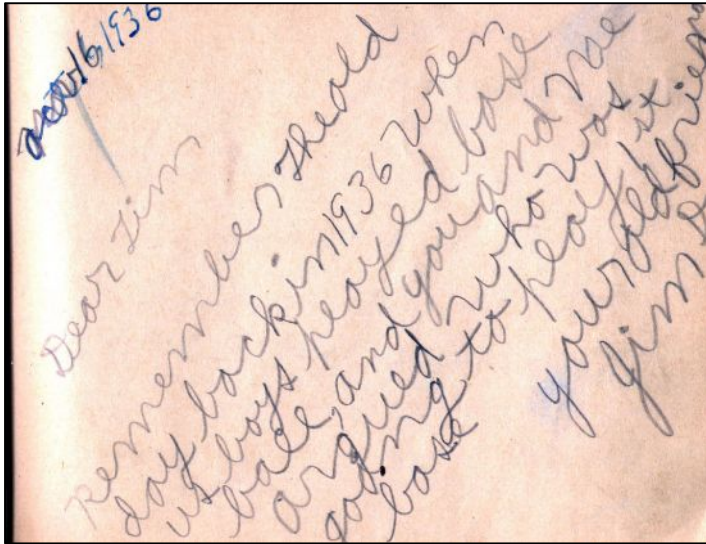 16, 1936
Dear Jim
Remember the old
day back in 1936 when
us boys peayed base
bace, and you and me
argued who was
going to peay 1st
base
your old friend
Jim